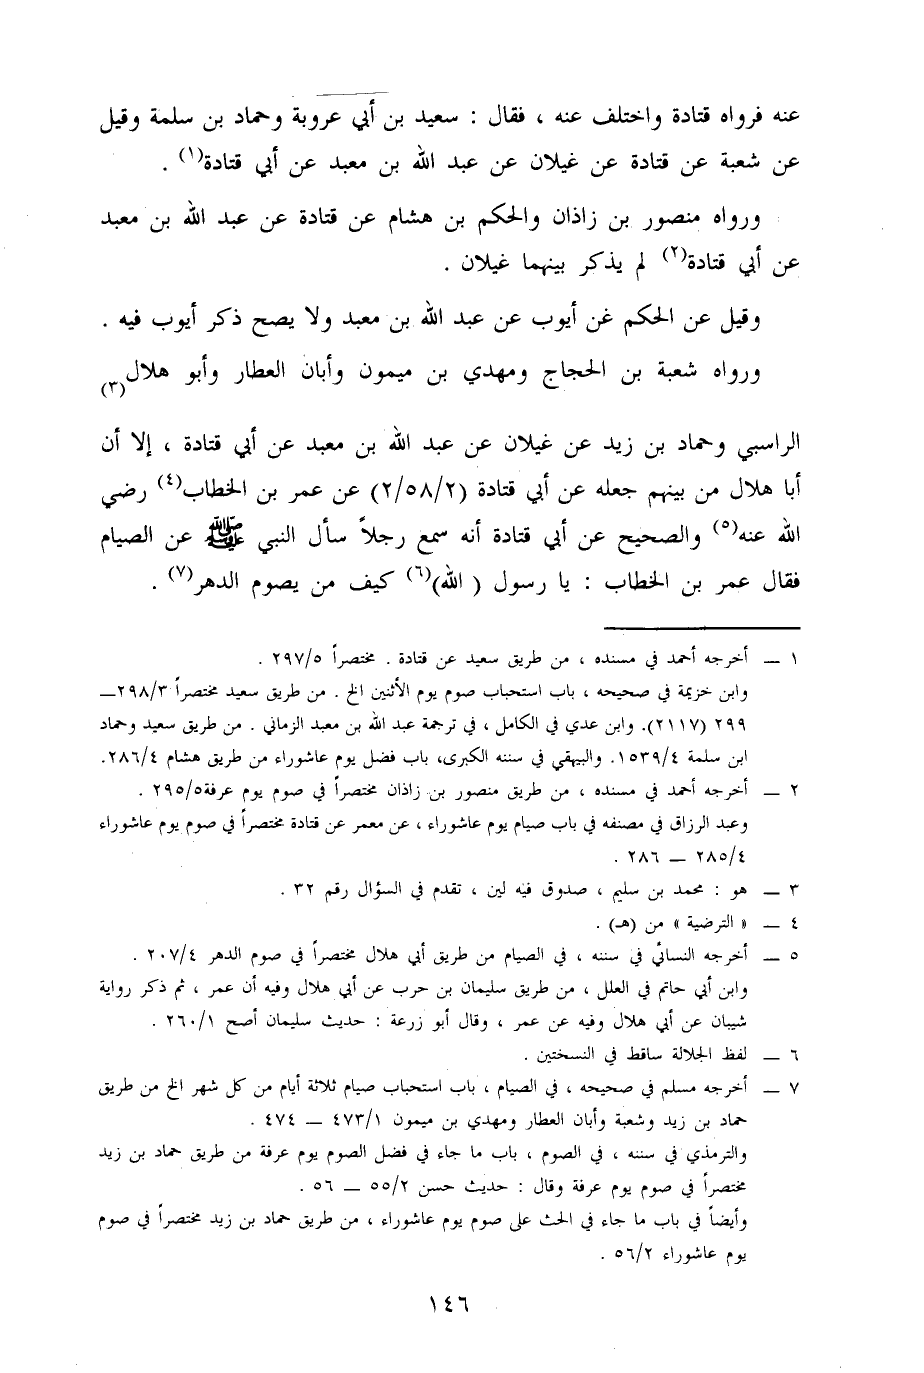 عنه فرواه قتادة واختلف عنه ، فقال : سعيد بن أبي عروبة وحماد بن سلمة وقيل
عن شعبة عن قتادة عن غيلان عن عبد الله بن معبد عن أبي قتادة(١) .
ورواه منصور بن زاذان والحكم بن هشام عن قتادة عن عبد الله بن معبد
عن أبي قتادة(٢) لم يذكر بينهما غيلان .
وقيل عن الحكم غن أيوب عن عبد الله بن معبد ولا يصح ذكر أيوب فيه .
ورواه شعبة بن الحجاج ومهدي بن ميمون وأبان العطار وأبو هلال(٣)
الراسبي وحماد بن زيد عن غيلان عن عبد الله بن معبد عن أبي قتادة ، إلا أن
أبا هلال من بينهم جعله عن أبي قتادة (٢/٥٨/٢) عن عمر بن الخطاب(٤) رضي
الله عنه(٥) والصحيح عن أبي قتادة أنه سمع رجلاً سأل النبي ﷺ عن الصيام
فقال عمر بن الخطاب : يا رسول ( الله)(٦) كيف من يصوم الدهر(٧) .
١ ــ أخرجه أحمد في مسنده ، من طريق سعيد عن قتادة . مختصراً ٢٩٧/٥ .
وابن خزيمة في صحيحه ، باب استحباب صوم يوم الأثنين الخ . من طريق سعيد مختصراً ٢٩٨/٣ــ
٢٩٩ (٢١١٧). وابن عدي في الكامل ، في ترجمة عبد الله بن معبد الزماني . من طريق سعيد وحماد
ابن سلمة ١٥٣٩/٤. والبيهقي في سننه الكبرى، باب فضل يوم عاشوراء من طريق هشام ٢٨٦/٤.
٢ ــ أخرجه أحمد في مسنده ، من طريق منصور بن زاذان مختصراً في صوم يوم عرفة٢٩٥/٥ .
وعبد الرزاق في مصنفه في باب صيام يوم عاشوراء ، عن معمر عن قتادة مختصراً في صوم يوم عاشوراء
٢٨٥/٤ ــ ٢٨٦ .
٣ ــ هو : محمد بن سليم ، صدوق فيه لين ، تقدم في السؤال رقم ٣٢ .
٤ ــ « الترضية » من (هـ) .
٥ ــ أخرجه النسائي في سننه ، في الصيام من طريق أبي هلال مختصراً في صوم الدهر ٢٠٧/٤ .
وابن أبي حاتم في العلل ، من طريق سليمان بن حرب عن أبي هلال وفيه أن عمر ، ثم ذكر رواية
شيبان عن أبي هلال وفيه عن عمر ، وقال أبو زرعة : حديث سليمان أصح ٢٦٠/١ .
٦ ــ لفظ الجلالة ساقط في النسختين .
٧ ــ أخرجه مسلم في صحيحه ، في الصيام ، باب استحباب صيام ثلاثة أيام من كل شهر الخ من طريق
حماد بن زيد وشعبة وأبان العطار ومهدي بن ميمون ٤٧٣/١ ــ ٤٧٤ .
والترمذي في سننه ، في الصوم ، باب ما جاء في فضل الصوم يوم عرفة من طريق حماد بن زيد
مختصراً في صوم يوم عرفة وقال : حديث حسن ٥٥/٢ ــ ٥٦ .
وأيضاً في باب ما جاء في الحث على صوم يوم عاشوراء ، من طريق حماد بن زيد مختصراً في صوم
يوم عاشوراء ٥٦/٢ .
١٤٦